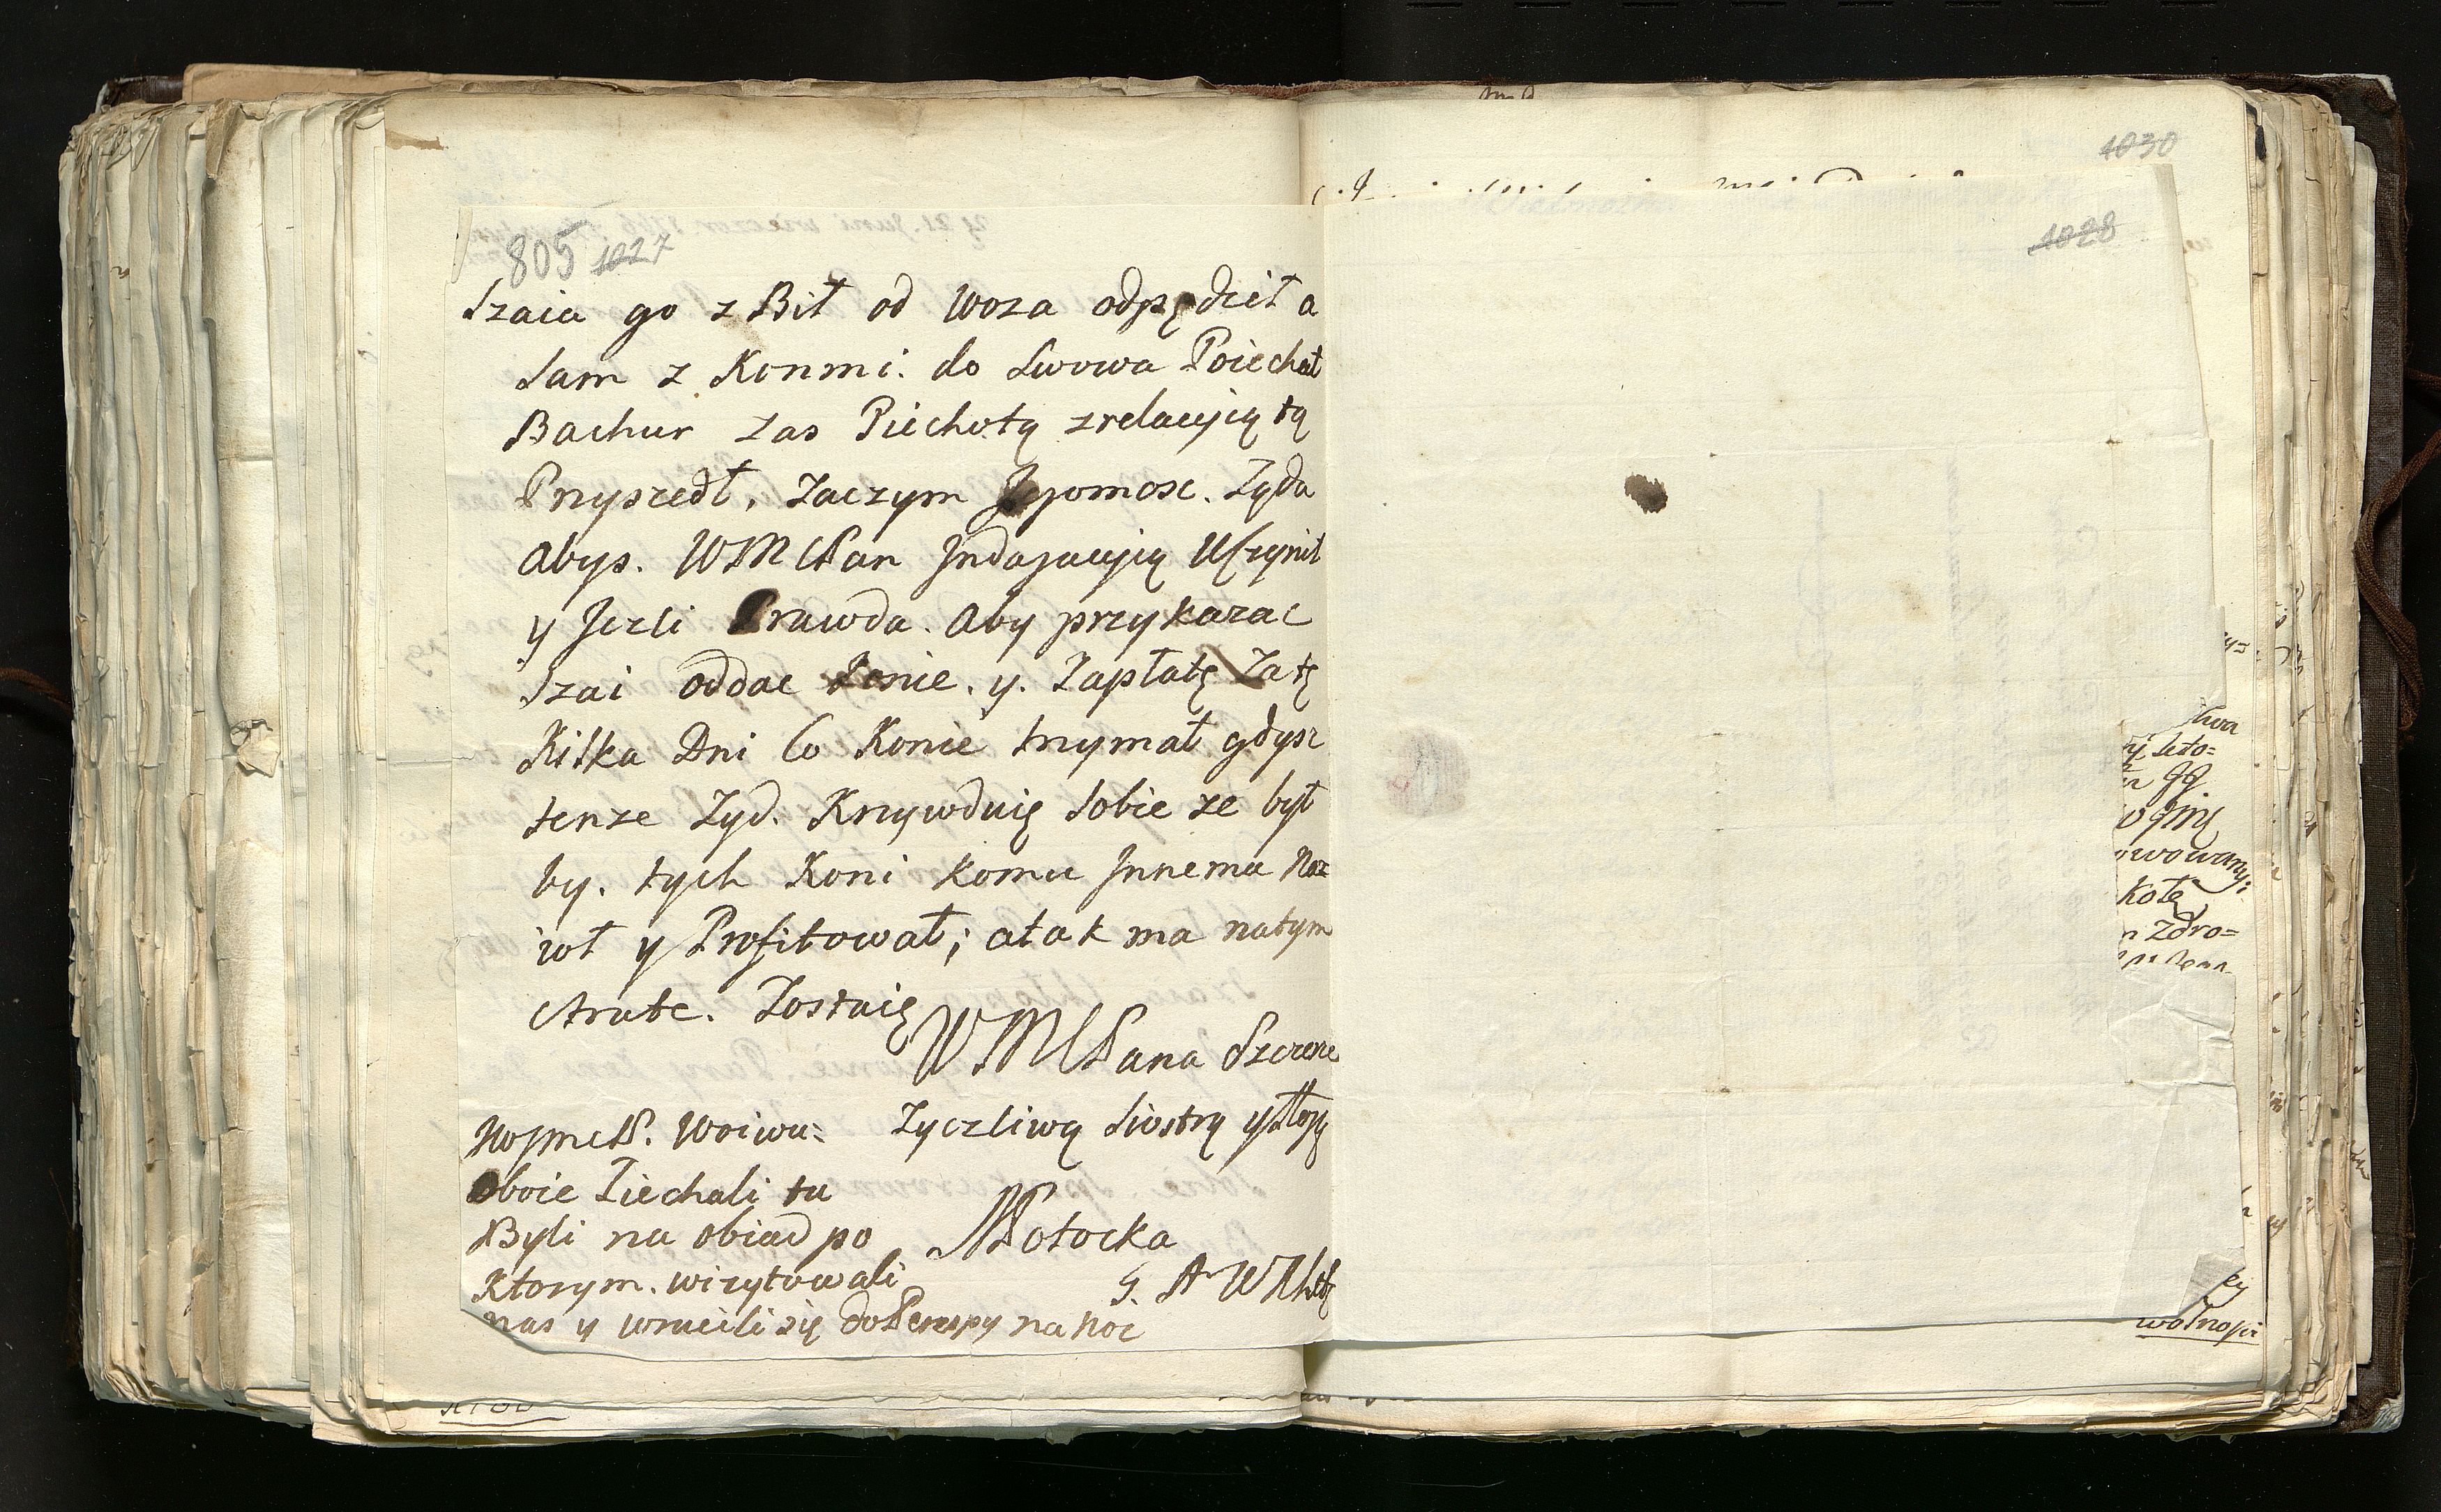 805 1027
Szaia go z Bił od Woza odpędził a
Sam z Konmi. do Lwowa Poiechał
Bachur zas Piechotą zrelacyią tą
Przyszedł. Zaczym Jegomosc. Zyda
abys. WMCPan Indagacyią Uczynił
y Jezli Prawda. Aby przykazac
Szai oddac Konie. y. Zapłatę Za tę
Kilka Dni Co Konie trzymał gdysz
tenze Zyd. Krzywduię Sobie ze był
by. tych Koni komu Innemu Naz
ioł y Profitował; a tak ma natym
Strate. Zostaię
WMCPana Szczerze
Zyczliwą Siostrą y Słogą
Potocka
IchmcP. Woiwu=
Oboie Ziechali tu
Byli na obiad po
Ktorym. wizytowali
nas y wrucili się do na Noc
1030
1028
kotę
Zdro=